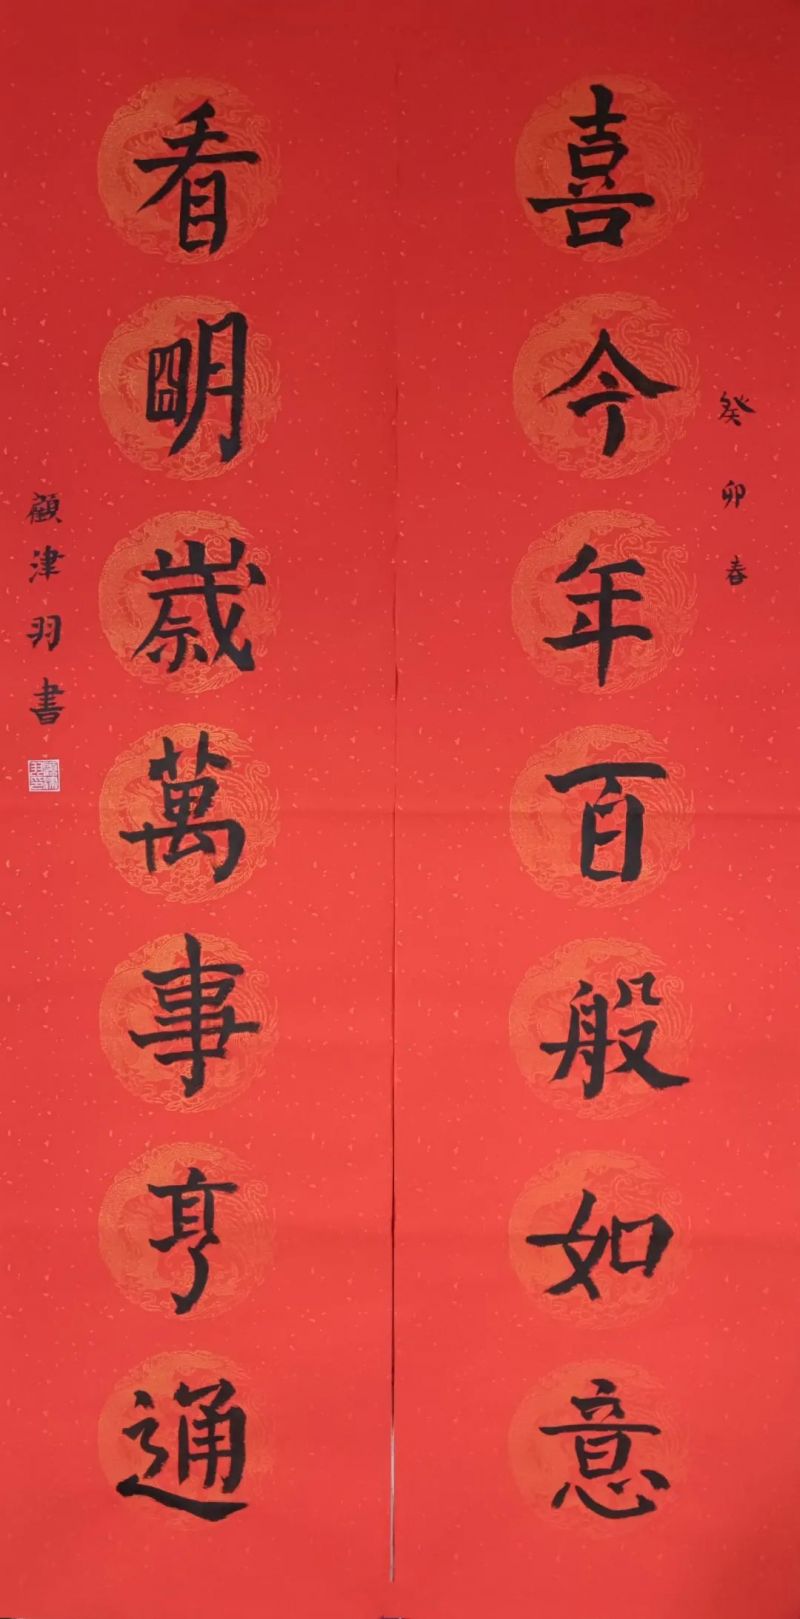 癸卯春
喜今年百般如意
看明歲萬事亨通
顧津羽書